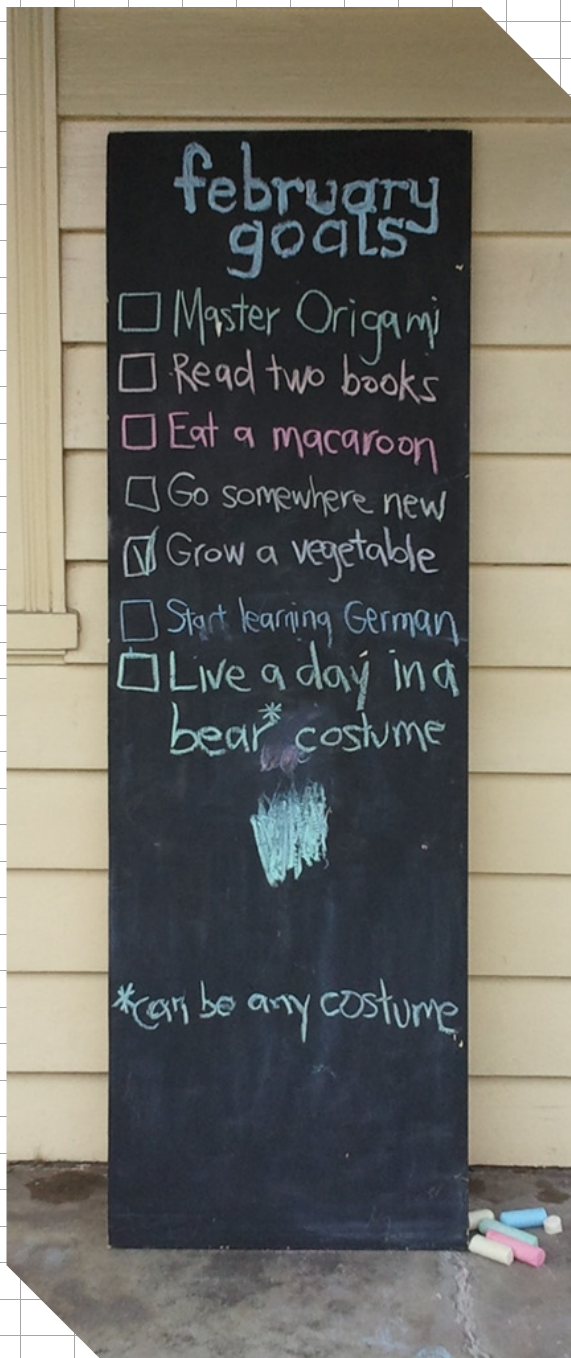 february
goals
Master Origami
Read two books
Eat a macaroon
Go somewhere new
Grow a vegetable
Start learning German
Live a day in a
bear* costume
*can be any costume